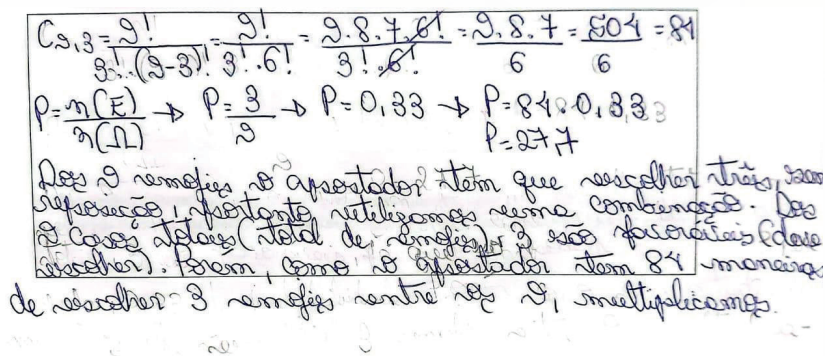 C9,3 = 9!/3!.(9-3)! = 9!/3!.6! = 9.8.7.6!/3!.6! = 9.8.7/6 = 504/6 = 84
P = n(E)/n(Ω) → P = 3/9 → P = 0,33 → P = 84.0,33
P = 27,7
Dos 9 emojies o apostador têm que escolher três, sem
reposição, portanto utilizamos uma combinação. Dos
9 casos totais (total de emojies), 3 são favoráveis (deve
escolher). Porém, como o apostador tem 84 maneiras
de escolher 3 emojies entre os 9, multiplicamos.